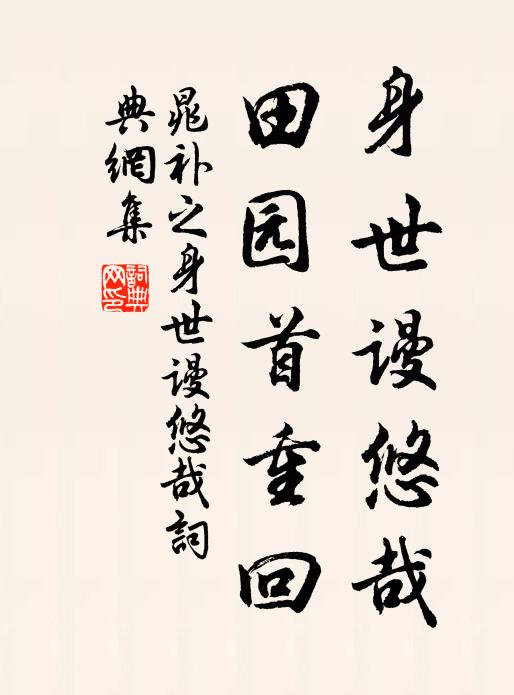 身世谩悠哉
田园首重回
晁补之身世谩悠哉詞
典網集
詞典網印